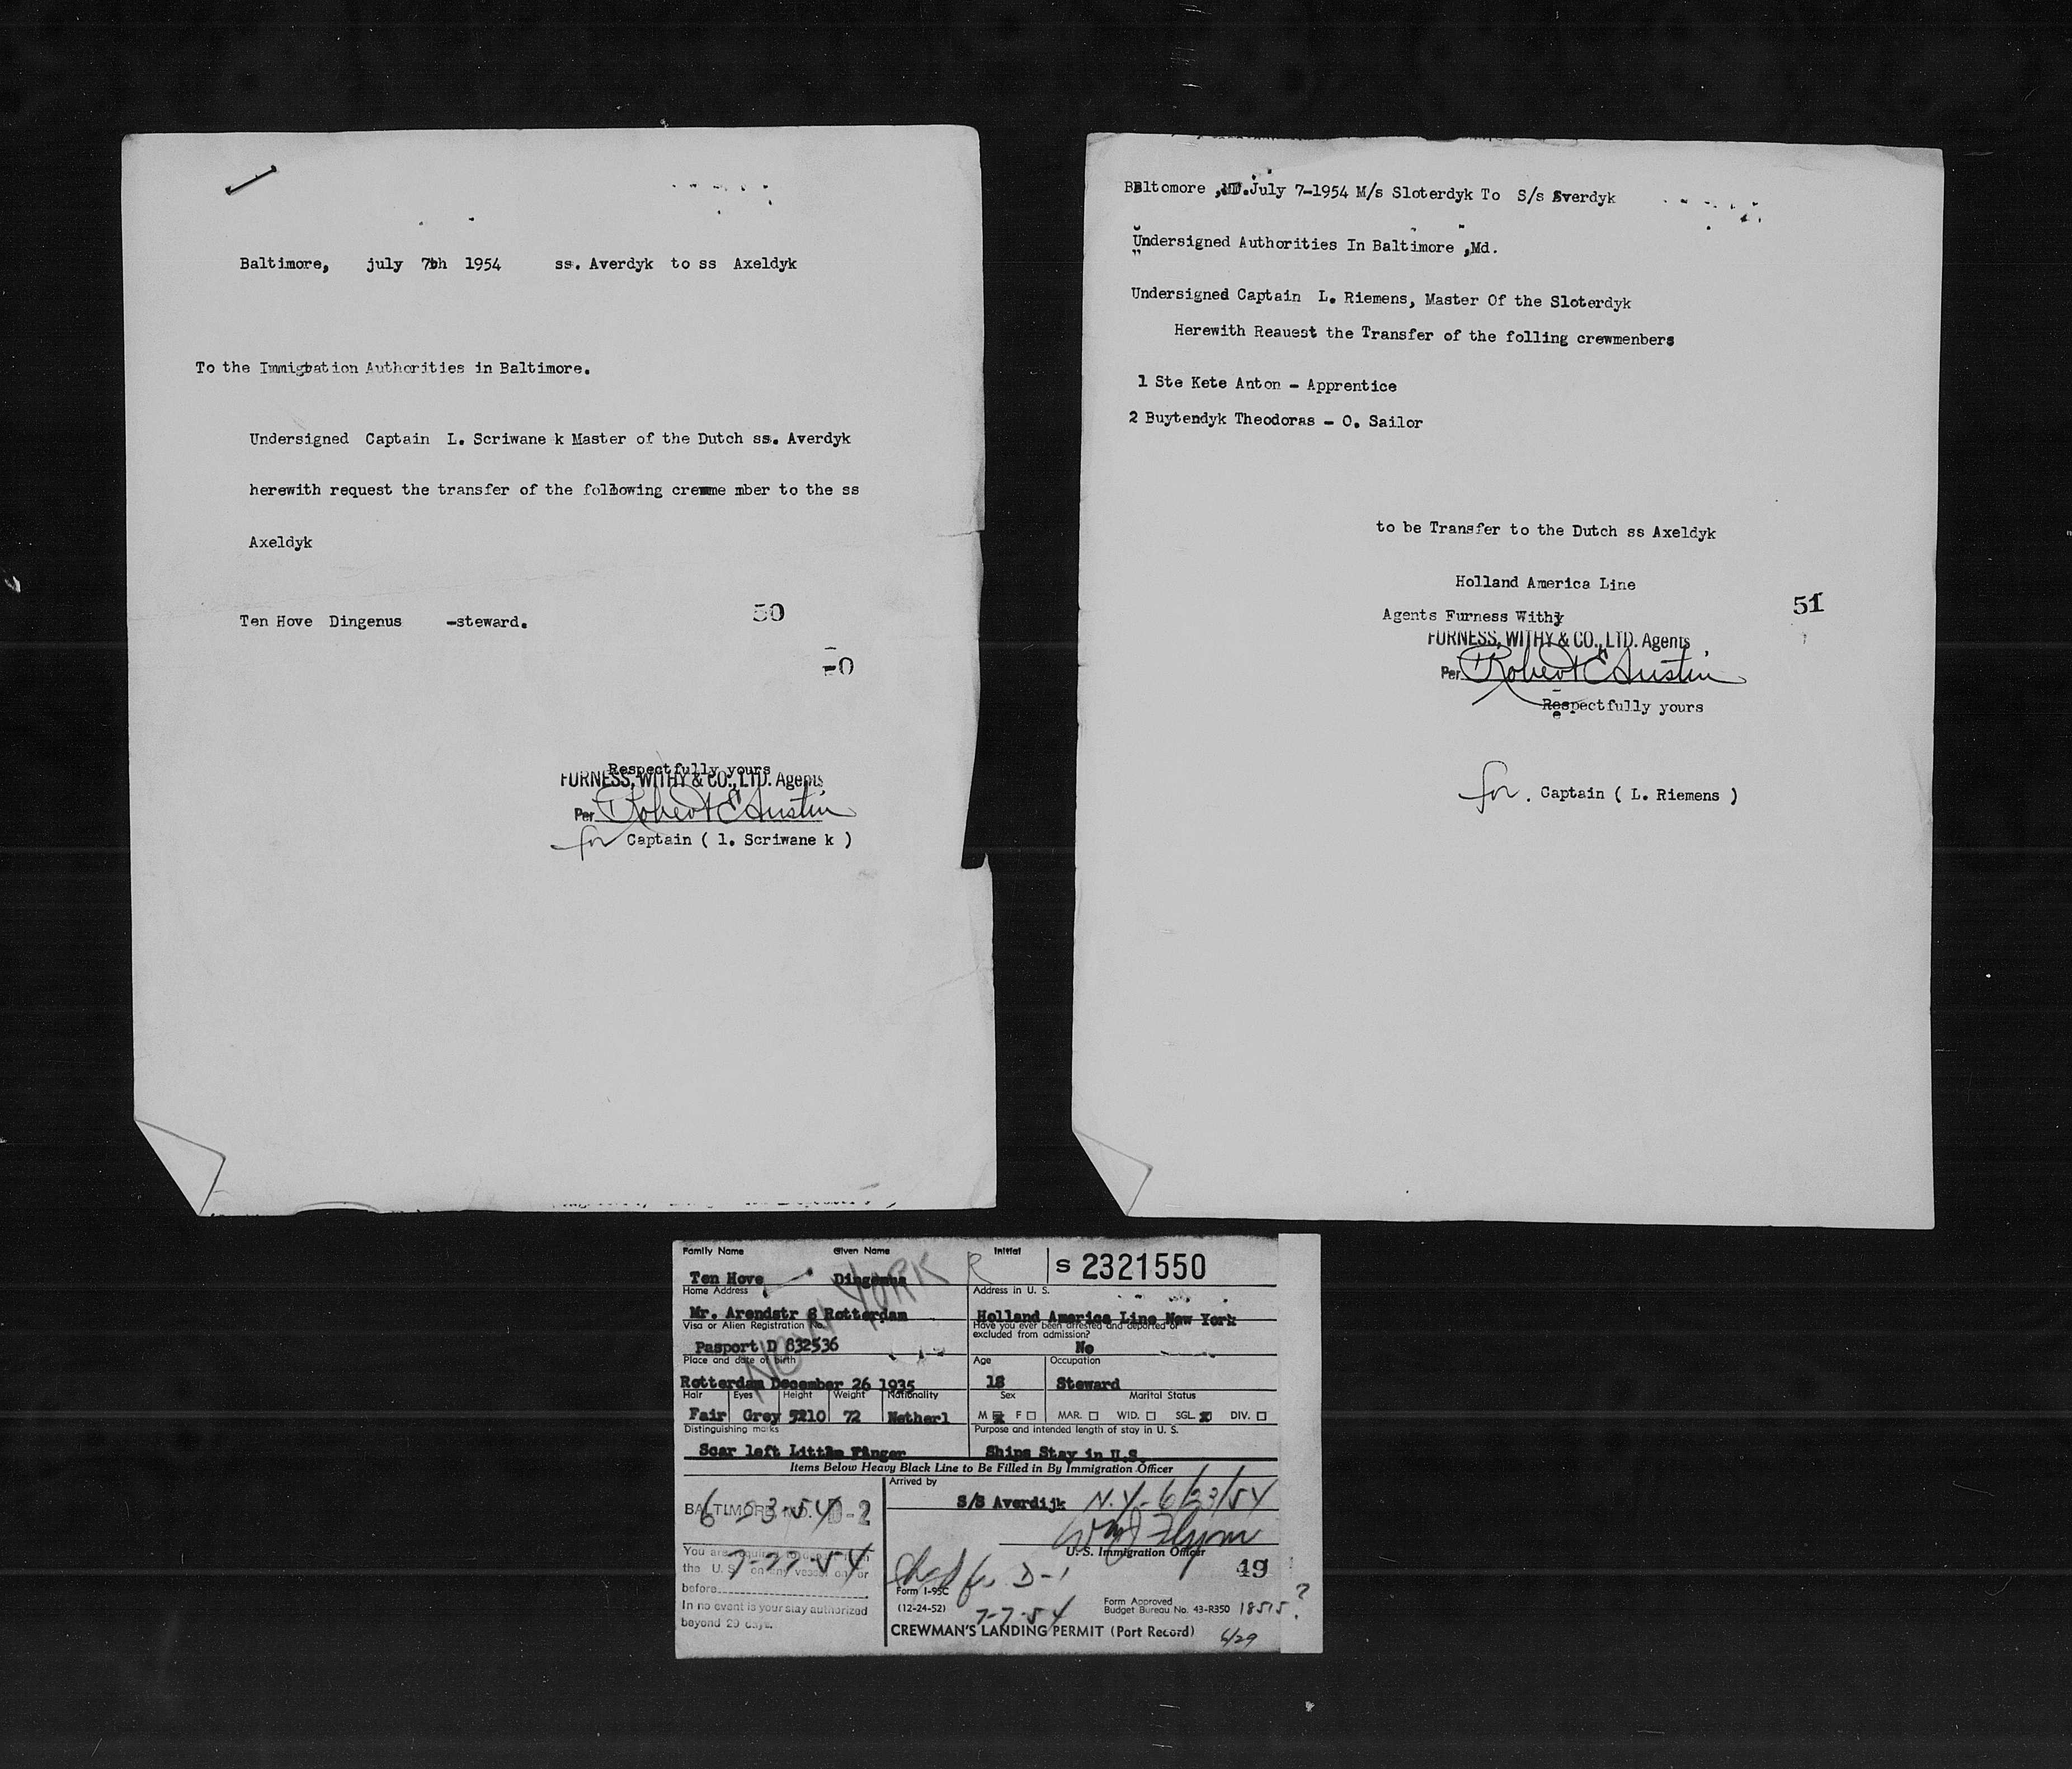 Baltimore, july 7th 1954 ss. Averdyk to ss Axeldyk
To the Immigration Authorities in Baltimore.
Undersigned Captain L. Scriwane k Master of the Dutch ss. Averdyk
herewith request the transfer of the following crewme mber to the ss
Axeldyk
Ten Hove Dingenus -steward.
50
Respectfully yours
FURNESS, WITHY & CO., LTD. Agents
Per Robert E Austin
for Captain ( l. Scriwane k )
BBltomore ,MD.July 7-1954 M/s Sloterdyk To S/s Averdyk
Undersigned Authorities In Baltimore ,Md.
Undersigned Captain L. Riemens, Master Of the Sloterdyk
Herewith Reauest the Transfer of the folling crewmenbers
1 Ste Kete Anton - Apprentice
2 Buytendyk Theodoras - O. Sailor
to be Transfer to the Dutch ss Axeldyk
Holland America Line
51
Agents Furness Withy
FURNESS, WITHY & CO., LTD. Agents
Per Robert E Austin
Respectfully yours
for. Captain ( L. Riemens )
Family Name Given Name Initial
S 2321550
Ten Hove Dingenus R
NEW YORK
Home Address Address in U. S.
Mr. Arendstr 8 Rotterdam Holland America Line New York
Visa or Alien Registration No. Have you ever been arrested and deported or
excluded from admission?
Pasport D 832536 No
Place and date of birth Age Occupation
Rotterdam December 26 1935 18 Steward
Hair Eyes Height Weight Nationality Sex Marital Status
Fair Grey 5210 72 Netherl M F MAR. WID. SGL. DIV.
Distinguishing marks Purpose and intended length of stay in U. S.
Scar left Little Finger Ships Stay in U.S.
Items Below Heavy Black Line to Be Filled in By Immigration Officer
Arrived by
S/S Averdijk N.Y- 6/23/54
BALTIMORE MD. D-2
U. S. Immigration Officer
You are required to depart from
the U. S. on any vessel on or
before
7-22-54
49
In no event is your stay authorized
beyond 29 days.
D-1
Form I-95C
(12-24-52)
7-7-54
Form Approved
Budget Bureau No. 43-R350 18515 ?
CREWMAN'S LANDING PERMIT (Port Record) 6/29